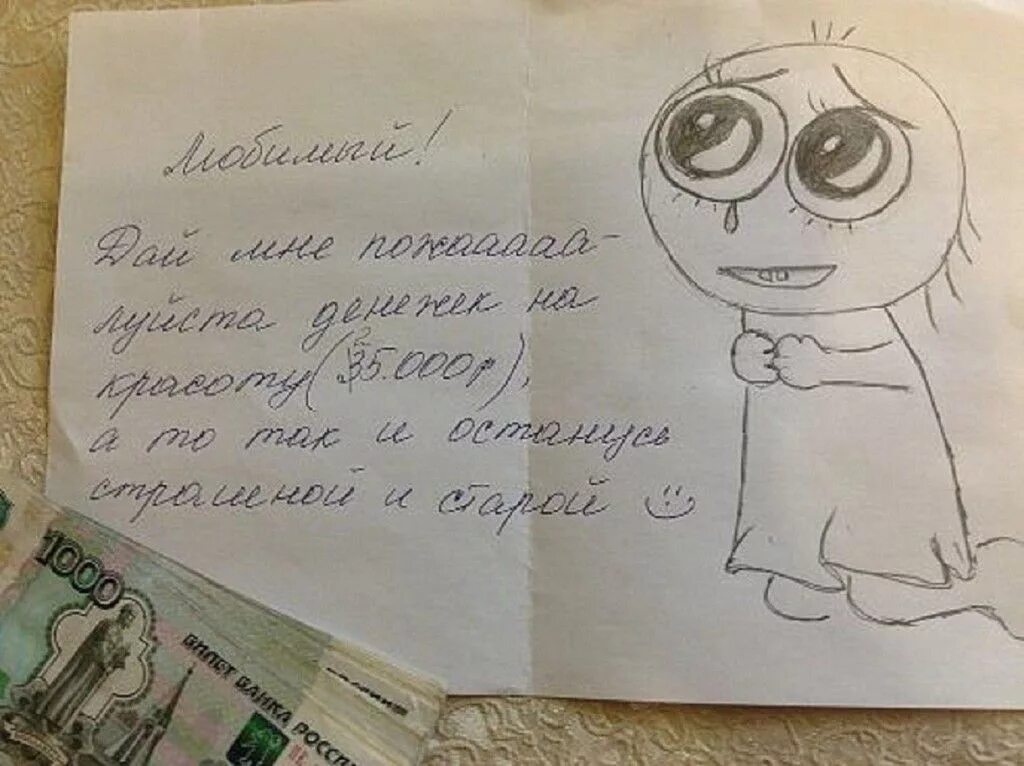 Любимый!
Дай мне пожааааа-
луйста денежек на
красоту (35.000р),
а то так и останусь
страшной и старой
1000
БИЛЕТ БАНКА РОССИ